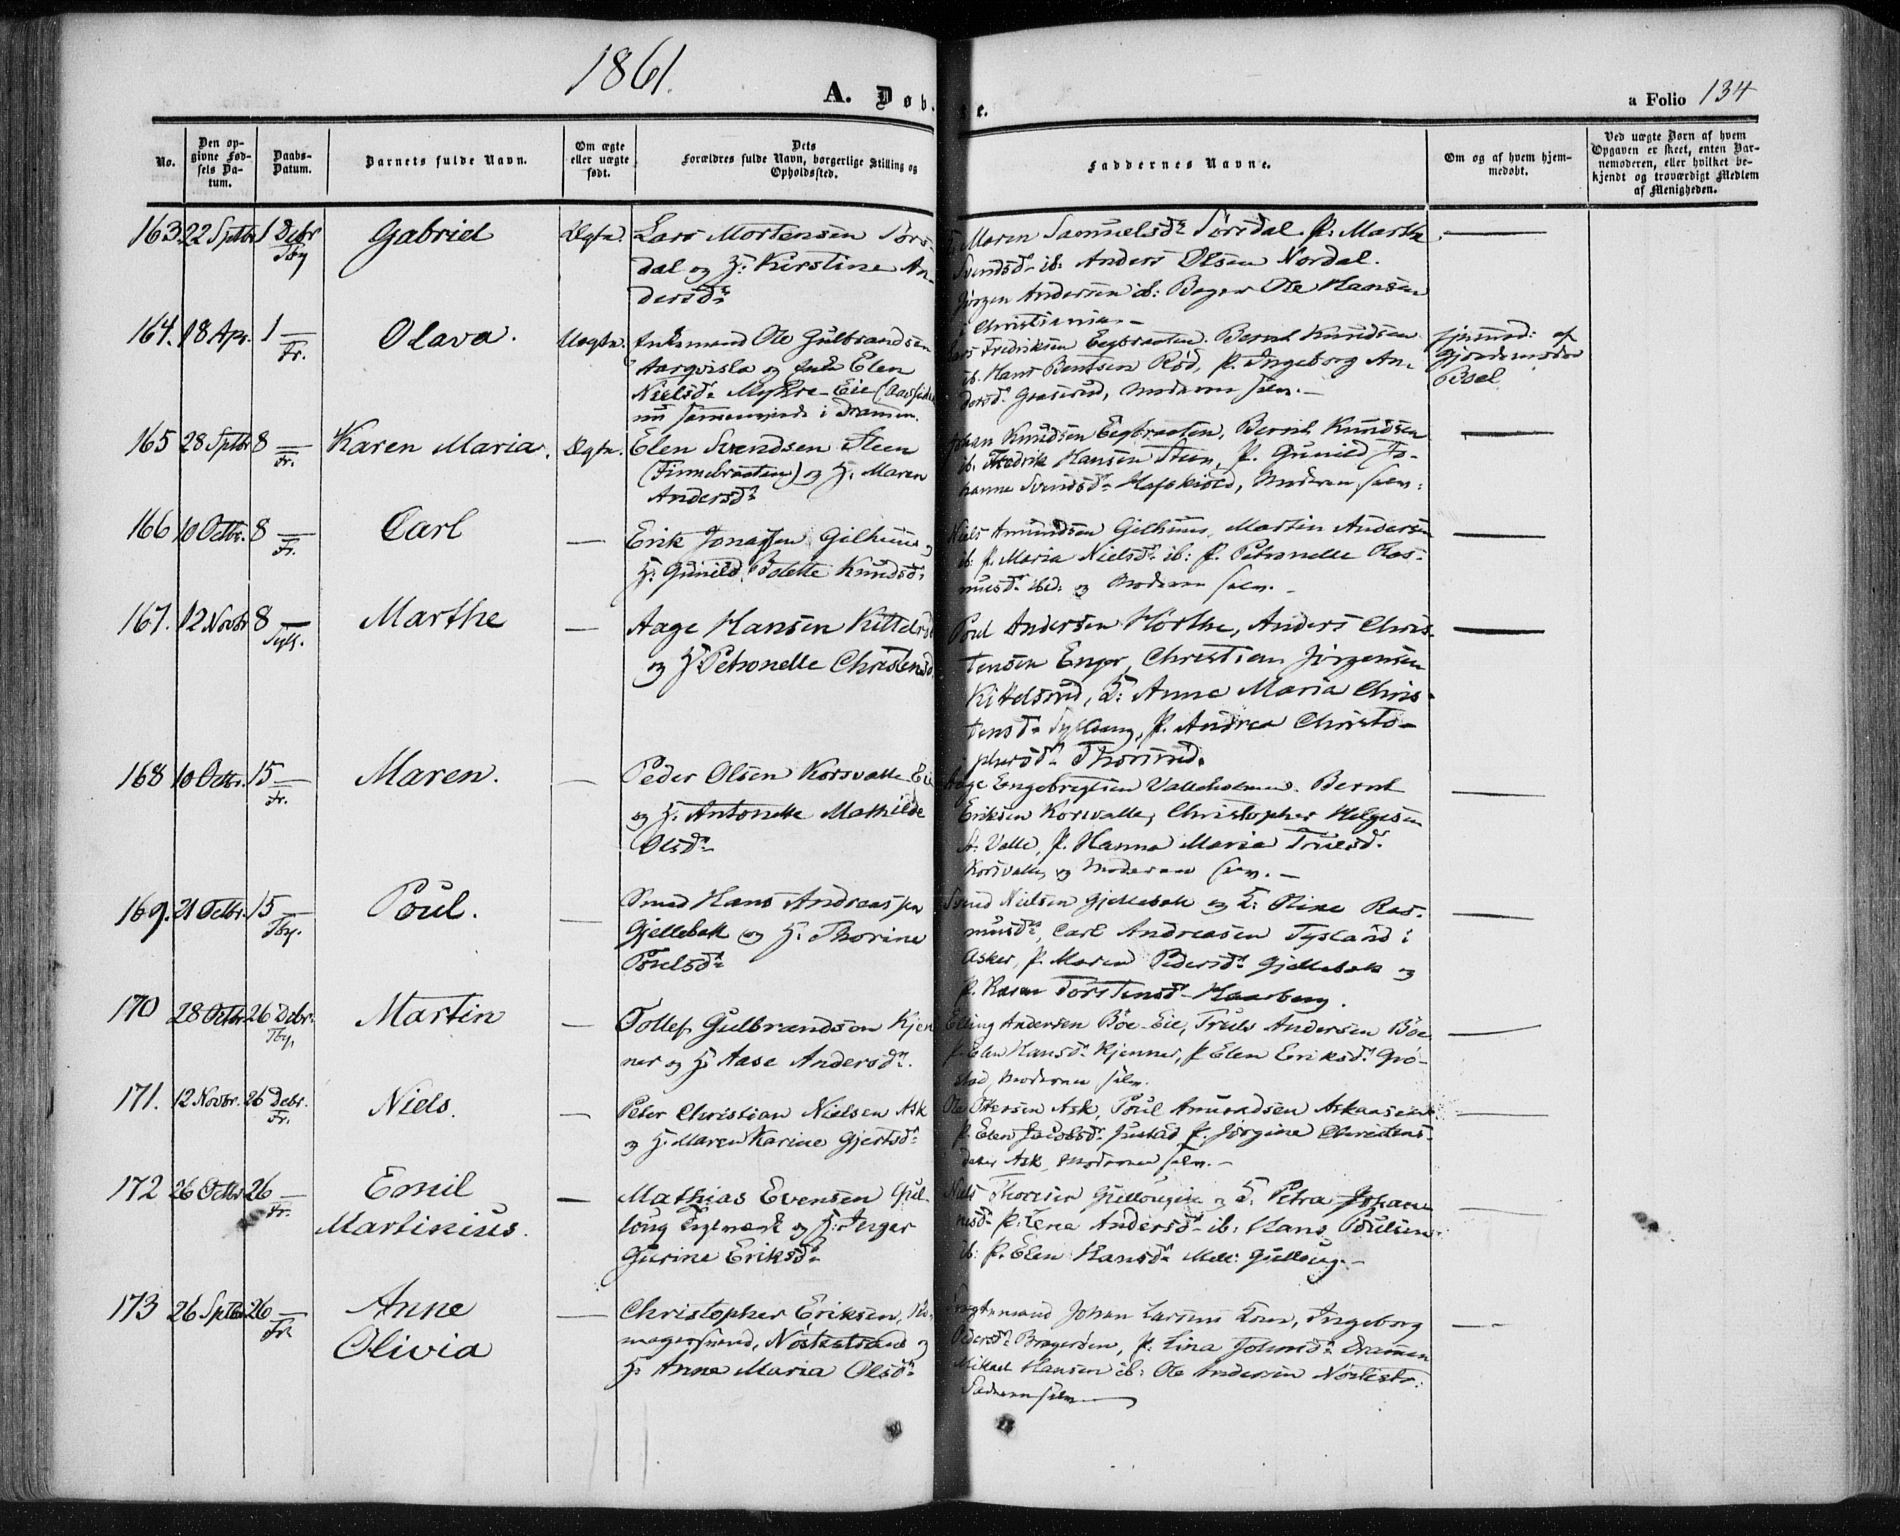 1861.
A. Døb
e.
a Folio 134
No.
Den op-
givne Fød-
sels Da-
tum.
Daabs-
Datum.
Barnets fulde Navn.
Om ægte
eller uægte
født.
Dets
Forældres fulde Navn, borgerlige Stilling og
Opholdssted.
Faddernes Navne.
Om og af hvem hjem-
medøbt.
Ved uægte Børn af hvem
Opgaven er skeet, enten Bar-
nemoderen, eller hvilket be-
kjendt og troværdigt Medlem
af Menigheden.
163 22 Sptbr 1 Debr Gabriel Ægte. Lars Mortensen Sørs-
dal og H. Kirstine An-
dersdr
Maren Samuelsdr Sørsdal. P. Marthe
Svendsdr ib. Anders Olsen Nordal.
Jørgen Andersen ib: Bager Ole Hansen
i Christiania. -
164. 18 Apr. 1 Fr. Olava. Uægte. Enkemand Ole Gulbrandsen
og Enke Elen
Nielsdr Myhre-Eie
i Dramen.
Fredriksen Eegbraaten. Bernt Knudsen
ib. Hans Bentsen Rød, P. Ingeborg An-
dersdr Moderen selv. -
af
Gjordemoder
Boel
165 28 Sptbr 8 Fr. Karen Maria. Ægte. Elen Svendsen Steen
(Finnebraaten) og H. Maren
Andersdr
Johan Knudsen Eegbraaten, Bernt Knudsen
ib. Fredrik Hansen Steen, P. Gunild Jo-
hanne Svendsdr Moderen selv.
166 10 Octbr. 8 Fr. Carl — Erik Jonassen Gilhuus og
H. Gunild Bolette Knudsdr
Niels Amundsen Gilhuus, Martin Andersen
ib: P. Maria Nielsdr ib: P. Petronelle Ras-
musdr ibd. og Moderen selv. -
167. 12 Novbr 8 Syll. Marthe — Aage Hansen Kittelsrud
og H. Petronelle Christensdr
Poul Andersen Hørthe, Anders Chris-
tensen Enger, Christian Jørgensen
Kittelsrud, K: Anne Maria Chris-
tensdr Sylling, P. Andrea Christo-
phersdr Thorsrud.
168 10 Octbr. 15 Fr. Maren. — Peder Olsen Korsvalle Eie
og H. Antonette Mathilde
Olsdr
Aage Engebregtsen Valleholmen. Bernt
Eriksen Korsvalle, Christopher Helgesen
St. Valle, P. Hanna Maria Truelsdr
Korsvalle og Moderen selv. -
169. 21 Octbr. 15 Tby. Poul. — Smed Hans Andreassen
Gjellebek og H. Thorine
Poulsdr
Svend Nielsen Gjellebek og K: Oline Ras-
musdr, Carl Andreasen Tysland i
Asker, P. Maren Pedersdr Gjellebek og
P. Karen Torstensdr Haaberg.
170 28 Octbr 26 Debr. Tby. Martin — Tollef Gulbrandsen Kjen-
ner og H. Aase Andersdr.
Elling Andersen Böe-Eie, Truls Andersen Böe
P. Elen Hansdr Kjenner, P. Elen Eriksdr Grö-
stad, Moderen selv.
171. 12 Novbr. 26 Debr. Fr. Niels. — Peter Christian Nielsen Ask
og H. Maren Karine Gjertsdr
Ole Ottersen Ask, Poul Amundsen Askaasen
P. Elen Jacobsdr Justad, P. Jørgine Christens-
datter Ask, Moderen selv. -
172 26 Octbr 26 Fr. Emil
Martinius. — Mathias Evensen Gul-
loug og H. Inger
Gurine Eriksdr
Niels Thoresen Gullougeie og K. Petra Johan-
nesdr P. Lene Andersdr ib: Hans Poulsen
ib: P. Elen Hansdr Mell: Gulloug. -
173 26 Sptbr 26 Fr. Anne
Olivia — Christopher Eriksen, Sko-
magersvend, Nöstestrand og
H. Anne Maria Olsdr
Johan Larsen Ingeborg
Pedersdr Bragerøen, P. Lina Johansdr Dramen
Mikael Hansen ib: Ole Andersen Nöstestr.
Faderen selv.